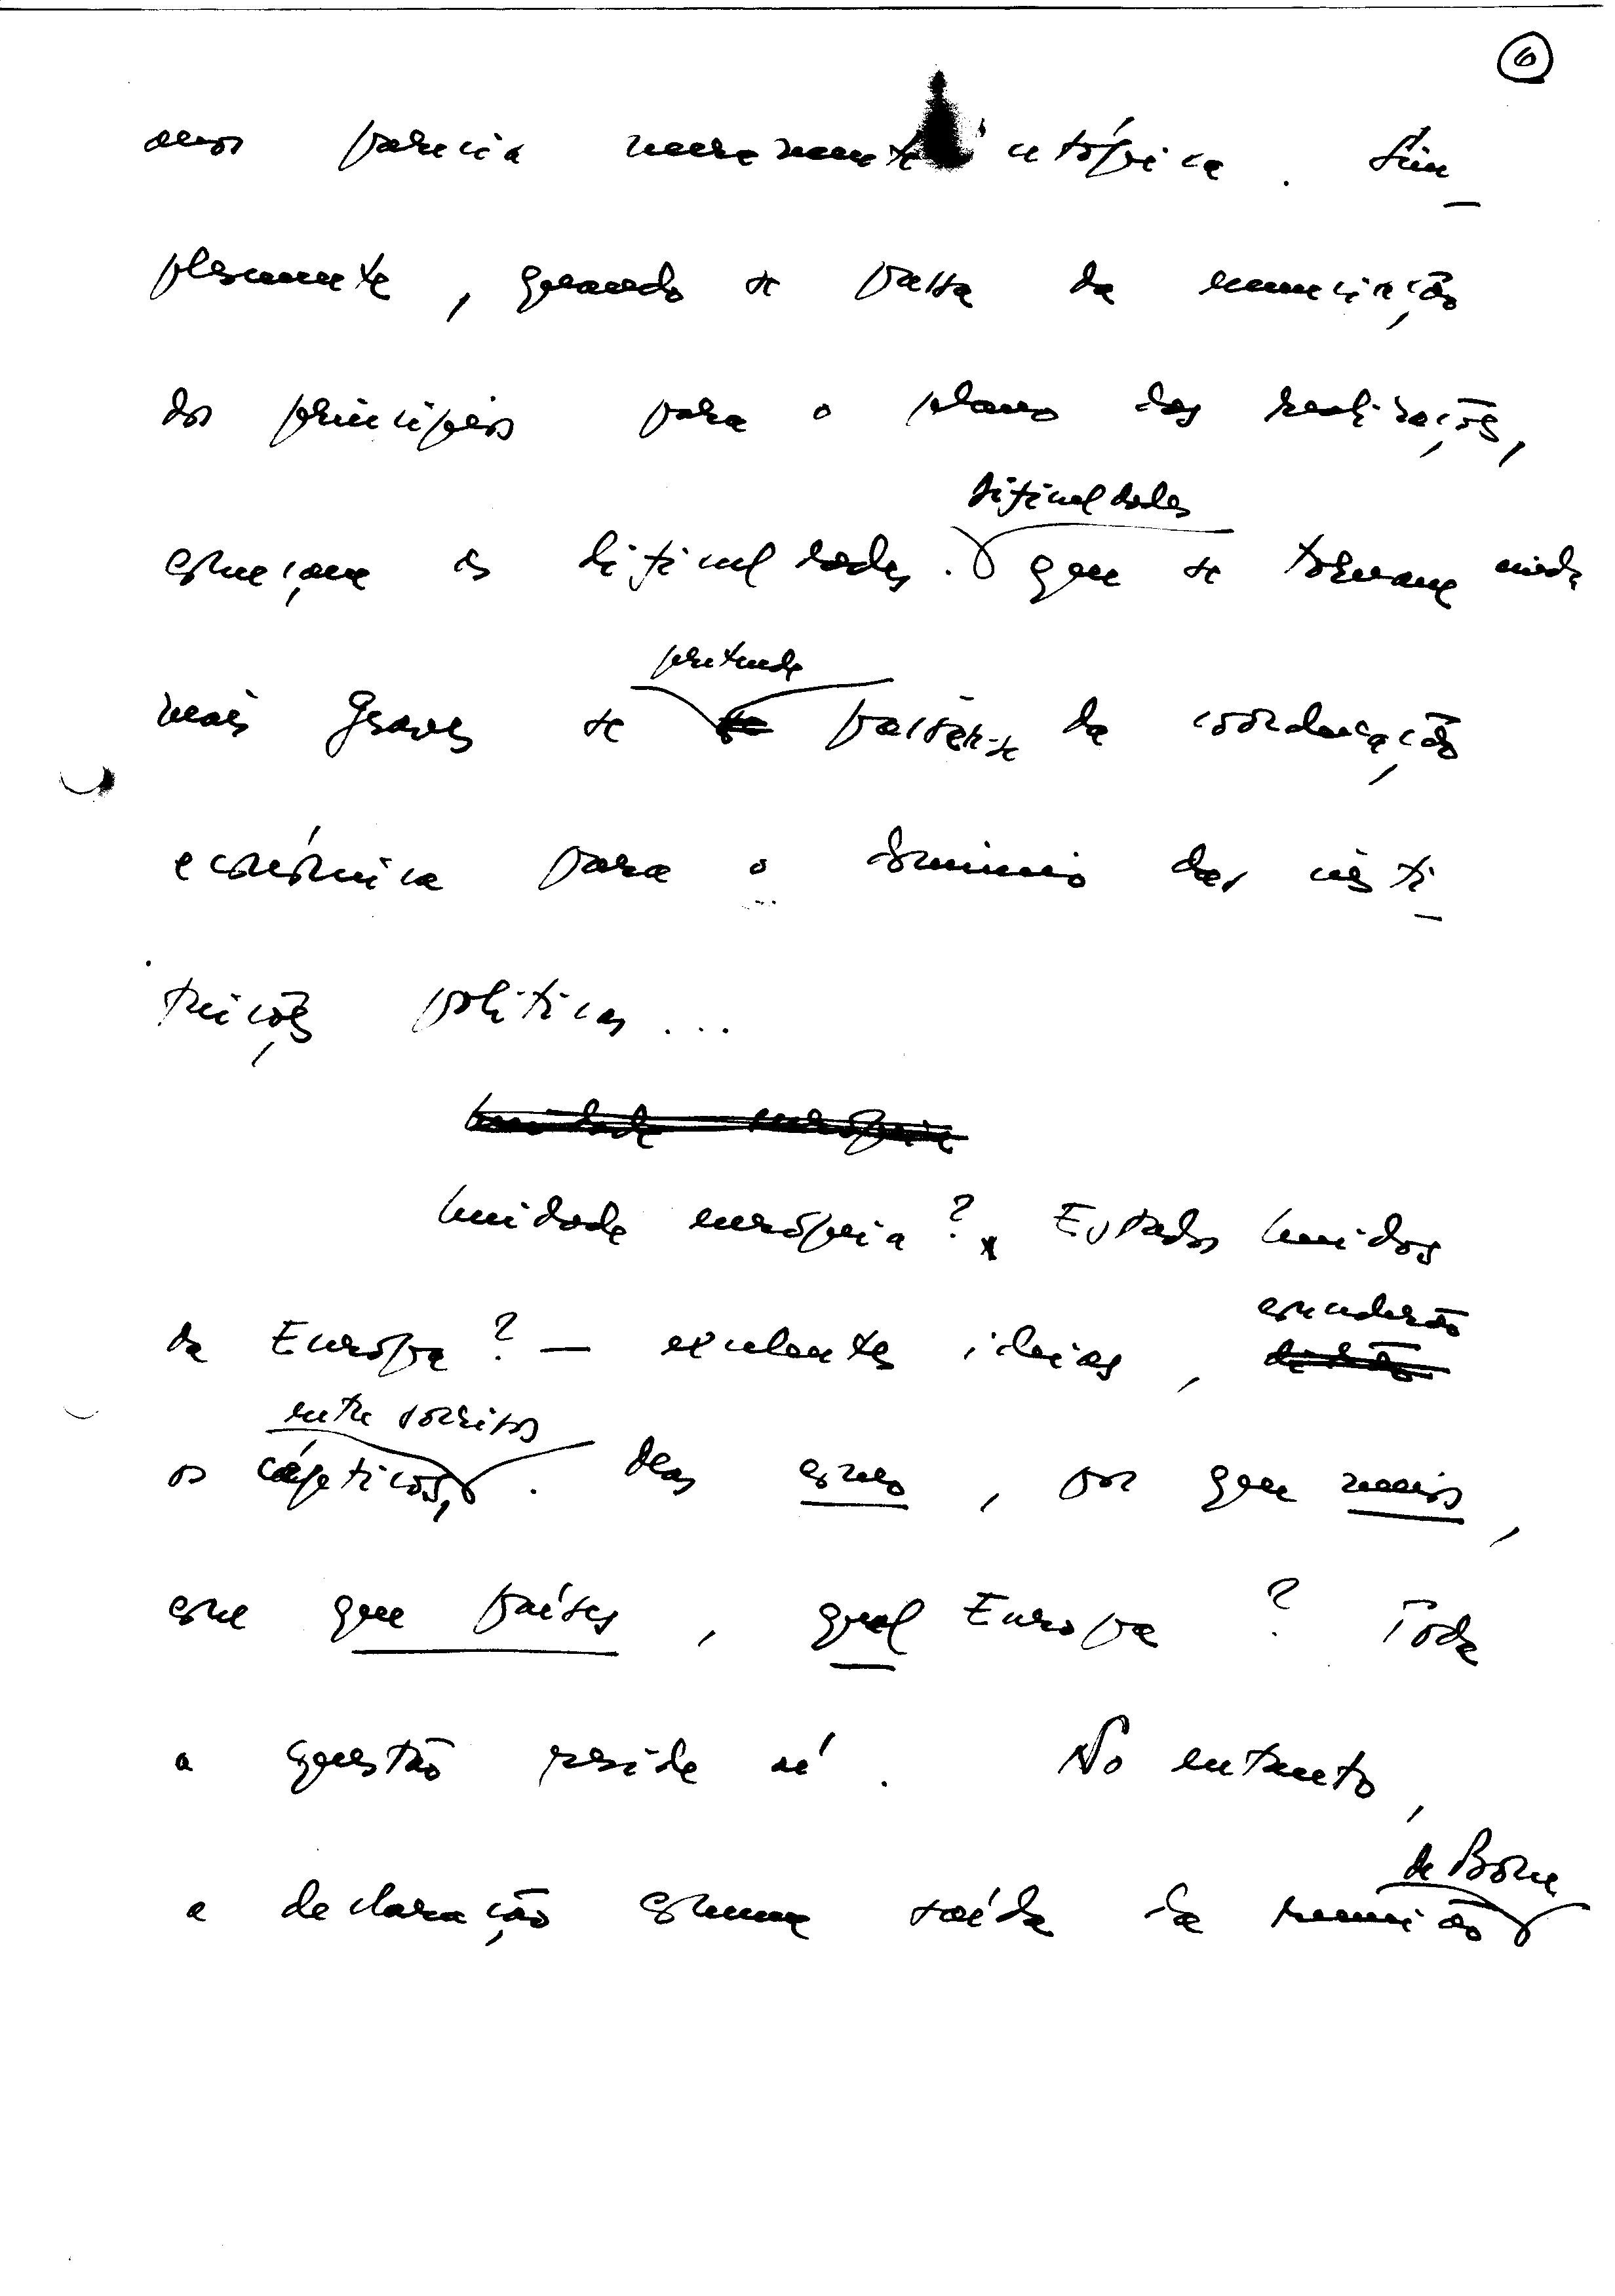 6
anos parecia meramente utópica. Sim_
plesmente, quando se passa da enunciação
dos princípios para o plano das realizações,
dificuldades
começam as dificuldades. que se tornam ainda
pretende
mais graves se se passar-se da coordenação
económica para o domínio das insti_
tuições políticas...
Unidade europeia
Unidade europeia? Estados Unidos
da Europa? — excelentes ideias,
entre sorrisos
os cépticos, . Mas como, por que meios,
com que países, qual Europa? Toda
a questão reside aí. No entanto,
de Bona
a declaração comum saída da reunião